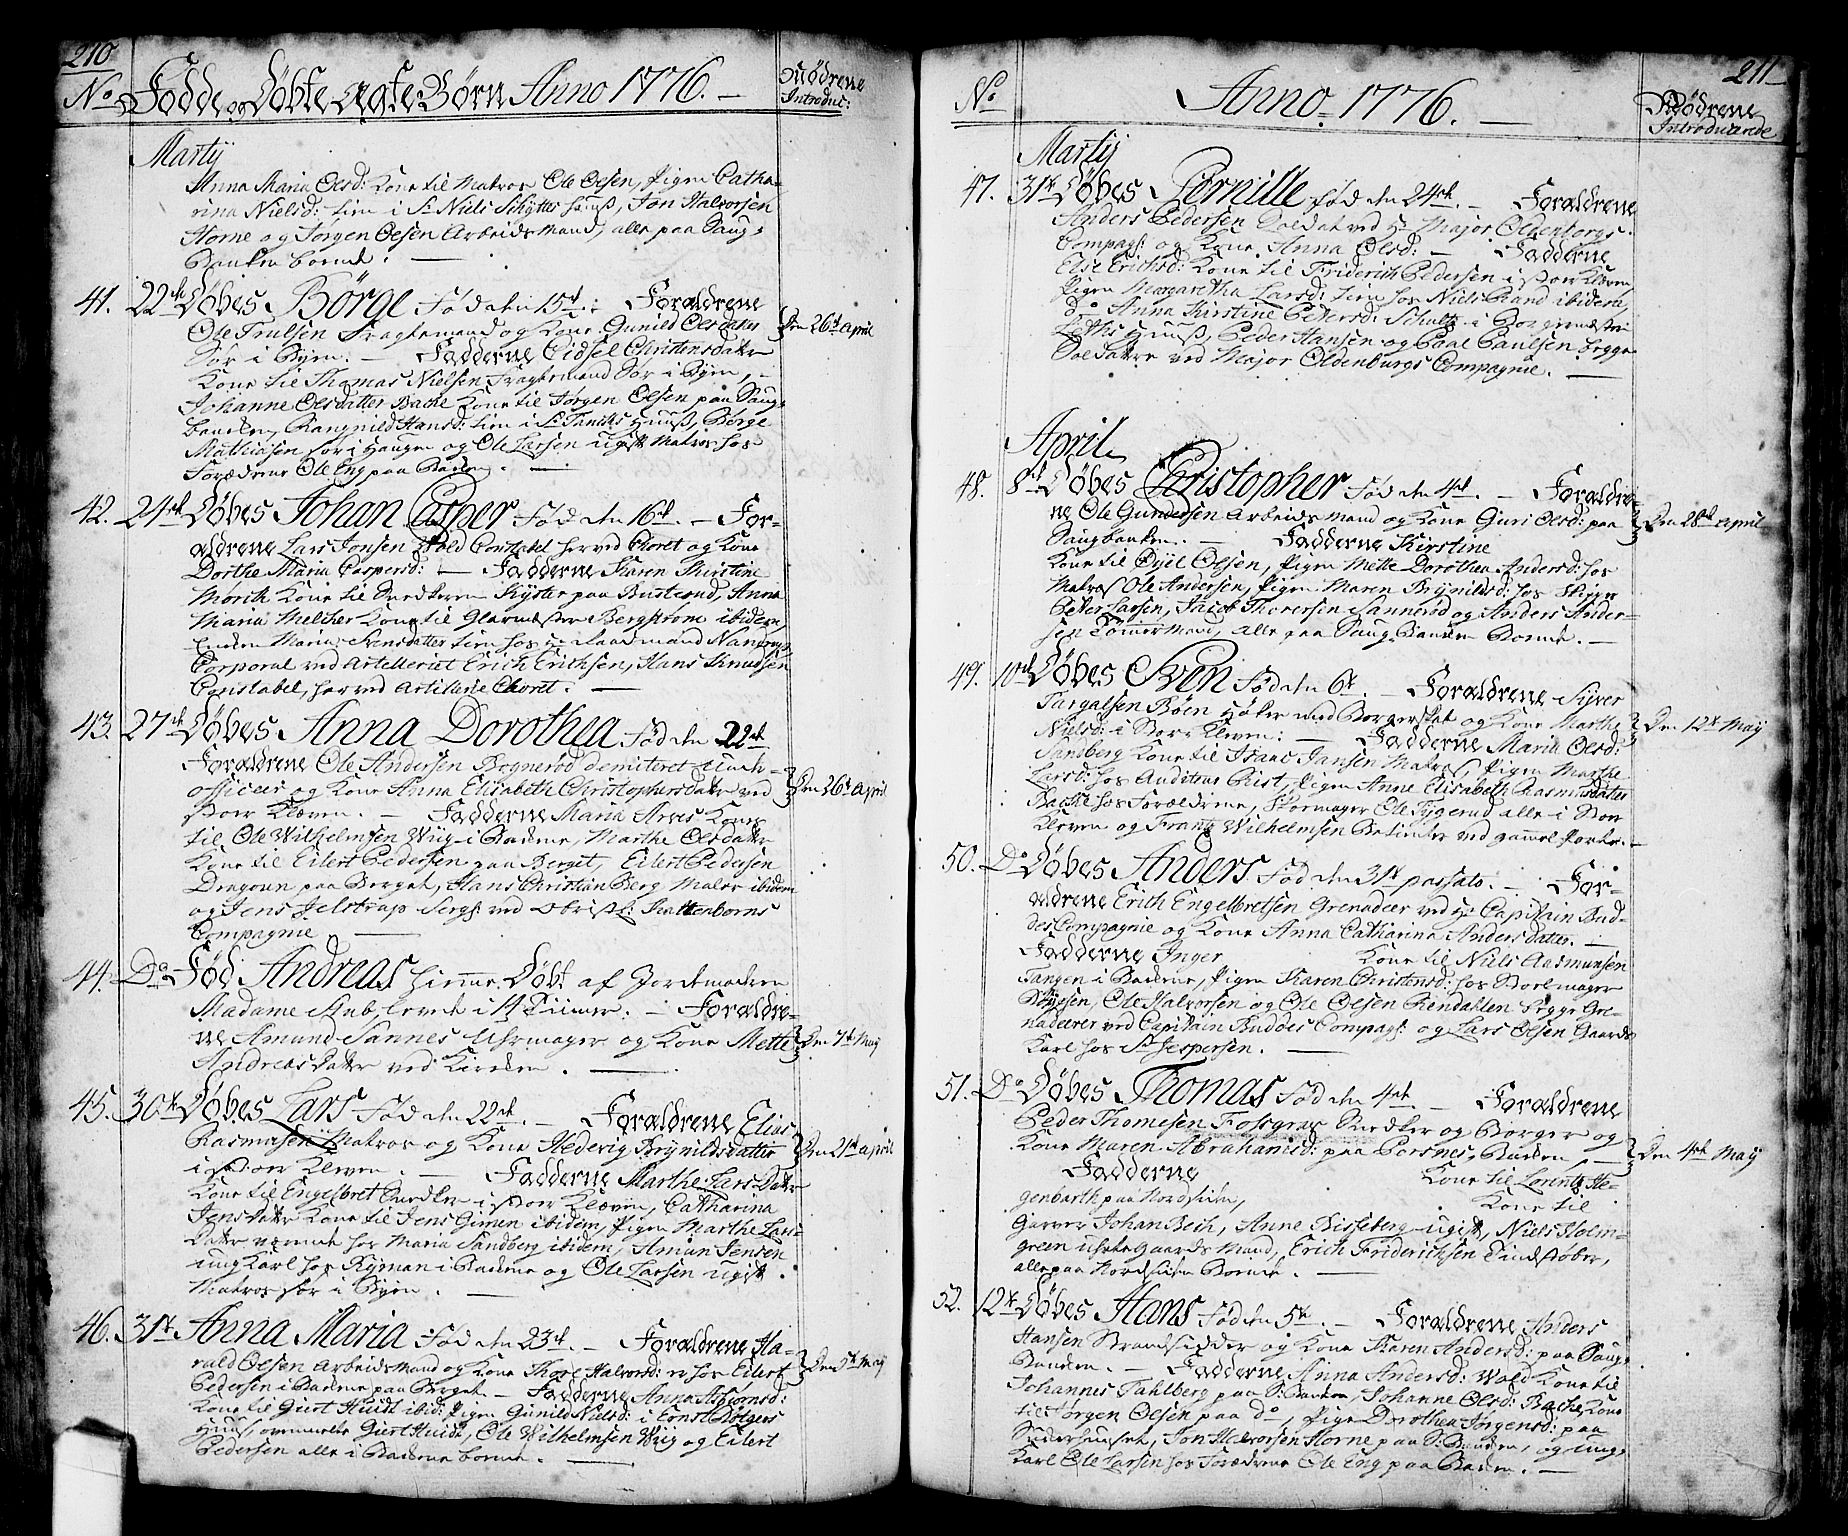 210
No. Födde og Döbte Ægte Börn Anno 1776. Mödrene Introduc:
Martij
Anna Maria Olsd: Kone til Matros Ole Olsen, Pigen Catha-
rina Nielsd: tien: i Sr Niels Schÿttes Huuß, Jon Halvorsen
Horne og Jörgen Olsen Arbeids Mand, alle paa Saug-
Banken boende.
41. 22de Döbes Börge Föd den 15de: Forældrene
Ole Trulsen Fragtemand og Kone Gunild Olsdatter
Sör i Byen. Fadderne Sidsel Christensdatter
Kone til Thomas Nielsen Fragtemand Sör i Byen,
Johanne Olsdatter Bache Kone til Jörgen Olsen paa Saug-
banken, Rangnild Hansd: tien: i Sr Tancks Huuß, Börge
Mathiasen Sör i Haugen og Ole Larsen ugift Matros hos
Forældrene Ole Eng paa Banken.
Den 26de April
42. 24de Döbes Johan Casper Föd den 16de. For-
ældrene Lars Jonsen Wold Constabel her ved Choret og Kone
Dorthe Maria Caspersd: Fadderne Karen Kirstine
Morth Kone til Snedkeren Kÿster paa Busterud, Anna
Maria Melcher Kone til Glarmester Bergström ibidem,
Enken Maria Jensdatter tien: hos Hr Laad mand Nandrup,
Corporal ved Artelleriet Erich Erichsen, Hans Knudsen
Constabel, her ved Artillerie Choret.
43. 27de Döbes Anna Dorothea Föd den 22de
Forældrene Ole Andersen Bognerød demiteret Undr-
officeer og Kone Anna Elisabeth Christophersdatter ved
Stoer Kleven. Fadderne Maria Arves Kone
til Ole Wilhelmsen Wiig i Bakkene, Marthe Olsdatter
Kone til Eilert Pedersen paa Berget, Eilert Pedersen
Dragoun paa Berget, Hans Christian Berg Maler ibidem
og Jens Jelstrup Serg: ved Obrist: Kattenborns
Compagnie
Den 26de April
44. Do Föd Andreas hieme Döbt af Jordemoderen
Madame Stub, levede i 14 Timer. Forældre-
ne Amund Sannes Uhrmager og Kone Mette
Andreasdatter ved Kirken.
Den 7de Maij
45. 30te Döbes Lars Föd den 22de. Forældrene Elias
Rasmusen Matros og Kone Hedevig Brÿnildsdatter
i Stoer Kleven. Fadderne Marthe Larsdatter
Kone til Engelbret Snedker i Stoer Kleven, Catharina
Jensdatter Kone til Jens Gimen ibidem, Pigen Marthe Lars-
datter værende hos Maria Sandberg ibidem, Amun Jensen
ung Karl hos Rÿman i Bakkene og Ole Larsen ugift
Matros Sör i Byen.
Den 21de April
46. 31te Anna Maria Föd den 23de. Forældrene Ha-
rald Olsen Arbeids Mand og Kone Thore Halvorsd: er hos Eilert
Pedersen i Bakkene paa Berget. Fadderne Anna Asbiörnsd:
Kone til Giert Huidt ibid: Pigen Gunild Nielsd: i Ernst Holgers
Huus, ovenmelte Giert Huidt, Ole Wilhelmsen Wiig og Eilert
Pedersen alle i Bakkene boende.
Den 5te Maij
211
No. Anno 1776. Mödrene Introducerede
Martij
47. 31te Döbes Pernille Föd den 24de. Forældrene
Anders Pedersen Soldat ved Hr Major Oldenborgs
Compag: og Kone Anna Olsd: Fadderne
Else Erichsd: Kone til Friderich Pedersen i Stoer Kleven
Pigen Margaretha Larsd: tien: hos Niels Brand ibidem,
do Anna Kirstine Pedersd: Schultz i Borgermester
Leths Huuß, Peder Hansen og Paal Paulsen begge
Soldater ved Major Oldenburgs Compagnie.
April
48. 8de Döbes Christopher Föd den 4de. Forældre-
ne Ole Gundersen Arbeids mand og Kone Guri Olsd: paa
Saugbanken. Fadderne Kirstine
Kone til Eyel Olsen, Pigen Mette Dorothea Andersd: hos
Matros Ole Andersen, Pigen Maren Brÿnildsd: hos Skipper
Peter Larsen, Jacob Thoresen Sannerød og Anders Ander-
sen Tömmermand, alle paa Saug-Banken Boende.
Den 28de April
49. 10de Döbes Sven Föd den 6te. Forældrene Siver
Targalsen Böen Höker med Borgerskab og Kone Marthe
Nielsd: i Stoer Kleven: Fadderne Maria Olsd:
Sandberg Kone til Isaac Jansen Matros, Pigen Marthe
Larsd: hos Auditeur Qvist, Pigen Anne Elisabeth Rasmusdatter
Bache hos Forældrene, Skomager Ole Tygerud alle i Stoer
Kleven og Frantz Wilhelmsen Betienter ved gammel Porten.
Den 12te Maij
50. Do Döbes Anders Föd den 31te passato. For-
ældrene Erich Engelbretsen Grenadeer ved Hr Capitain Bud-
des Compagnie og Kone Anna Catharina Andersdatter.
Fadderne Inger Kone til Niels Aasmunsen
Tangen i Bakkene, Pigen Karen Christensd: hos Skoemager
Börgesen, Ole Halvorsen og Ole Olsen Rendahlen begge Gre-
nadeerer ved Capitain Buddes Compag: og Lars Olsen Gaards
Karl hos Sr Jespersen.
51. Do Döbes Thomas Föd den 4de. Forældrene
Peder Thomesen Fossgrav Snedker og Borger og
Kone Maren Abrahamsd: paa Porsnes Bakken,
Fadderne Kone til Lorentz He-
genbarth paa Nordsiden, Kone til
Garver Johan Bech, Anne Bisseberg ugift, Niels Holm-
green Uhrte Gaards Mand, Erich Friderichsen Tindstöber,
alle paa Nordsiden Boende.
Den 4de Maij
52. 12te Döbes Hans Föd den 5te. Forældrene Anders
Hansen Strandsidder og Kone Karen Andersd: paa Saug-
Banken. Fadderne Anna Andersd: Wold Kone til
Johannes Tahlberg paa S: Banken, Johanne Olsd: Bache Kone
til Jörgen Olsen paa do, Pigen Dorothea Jörgensd: paa
Süderhuuset, Jon Halvorsen Horne paa S: Banken, og ung-
Karl Ole Larsen hos Forældrene Ole Eng paa Banken.